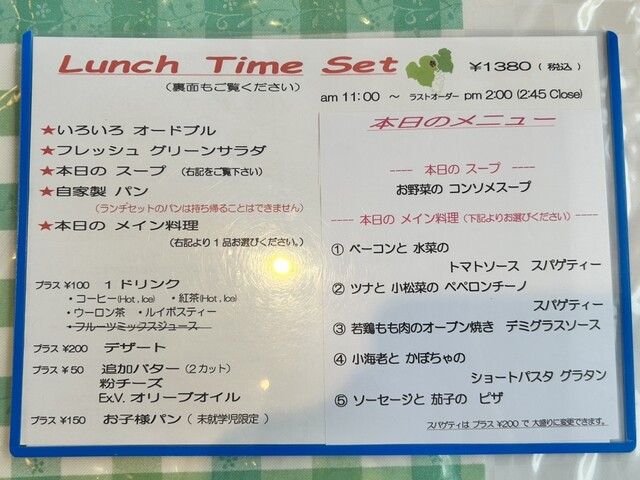 Lunch Time Set ¥1380 ( 税込 )
(裏面もご覧ください)
am 11:00 ～ ラストオーダー pm 2:00 (2:45 Close)
★いろいろ オードブル
★フレッシュ グリーンサラダ
★本日の スープ (右記をご覧下さい)
★自家製 パン
(ランチセットのパンは持ち帰ることはできません)
★本日の メイン料理
(右記より1品お選びください。)
プラス ¥100 1 ドリンク
・コーヒー(Hot , Ice) ・紅茶(Hot , Ice)
・ウーロン茶 ・ルイボスティー
・フルーツミックスジュース
プラス ¥200 デザート
プラス ¥50 追加バター (2カット)
粉チーズ
Ex.V. オリーブオイル
プラス ¥150 お子様パン ( 未就学児限定 )
本日のメニュー
---- 本日の スープ ----
お野菜の コンソメスープ
---- 本日の メイン料理 (下記よりお選びください) ----
① ベーコンと 水菜の
トマトソース スパゲティー
② ツナと 小松菜の ペペロンチーノ
スパゲティー
③ 若鶏もも肉のオーブン焼き デミグラスソース
④ 小海老と かぼちゃの
ショートパスタ グラタン
⑤ ソーセージと 茄子の ピザ
スパゲティは プラス ¥200 で 大盛りに変更できます。